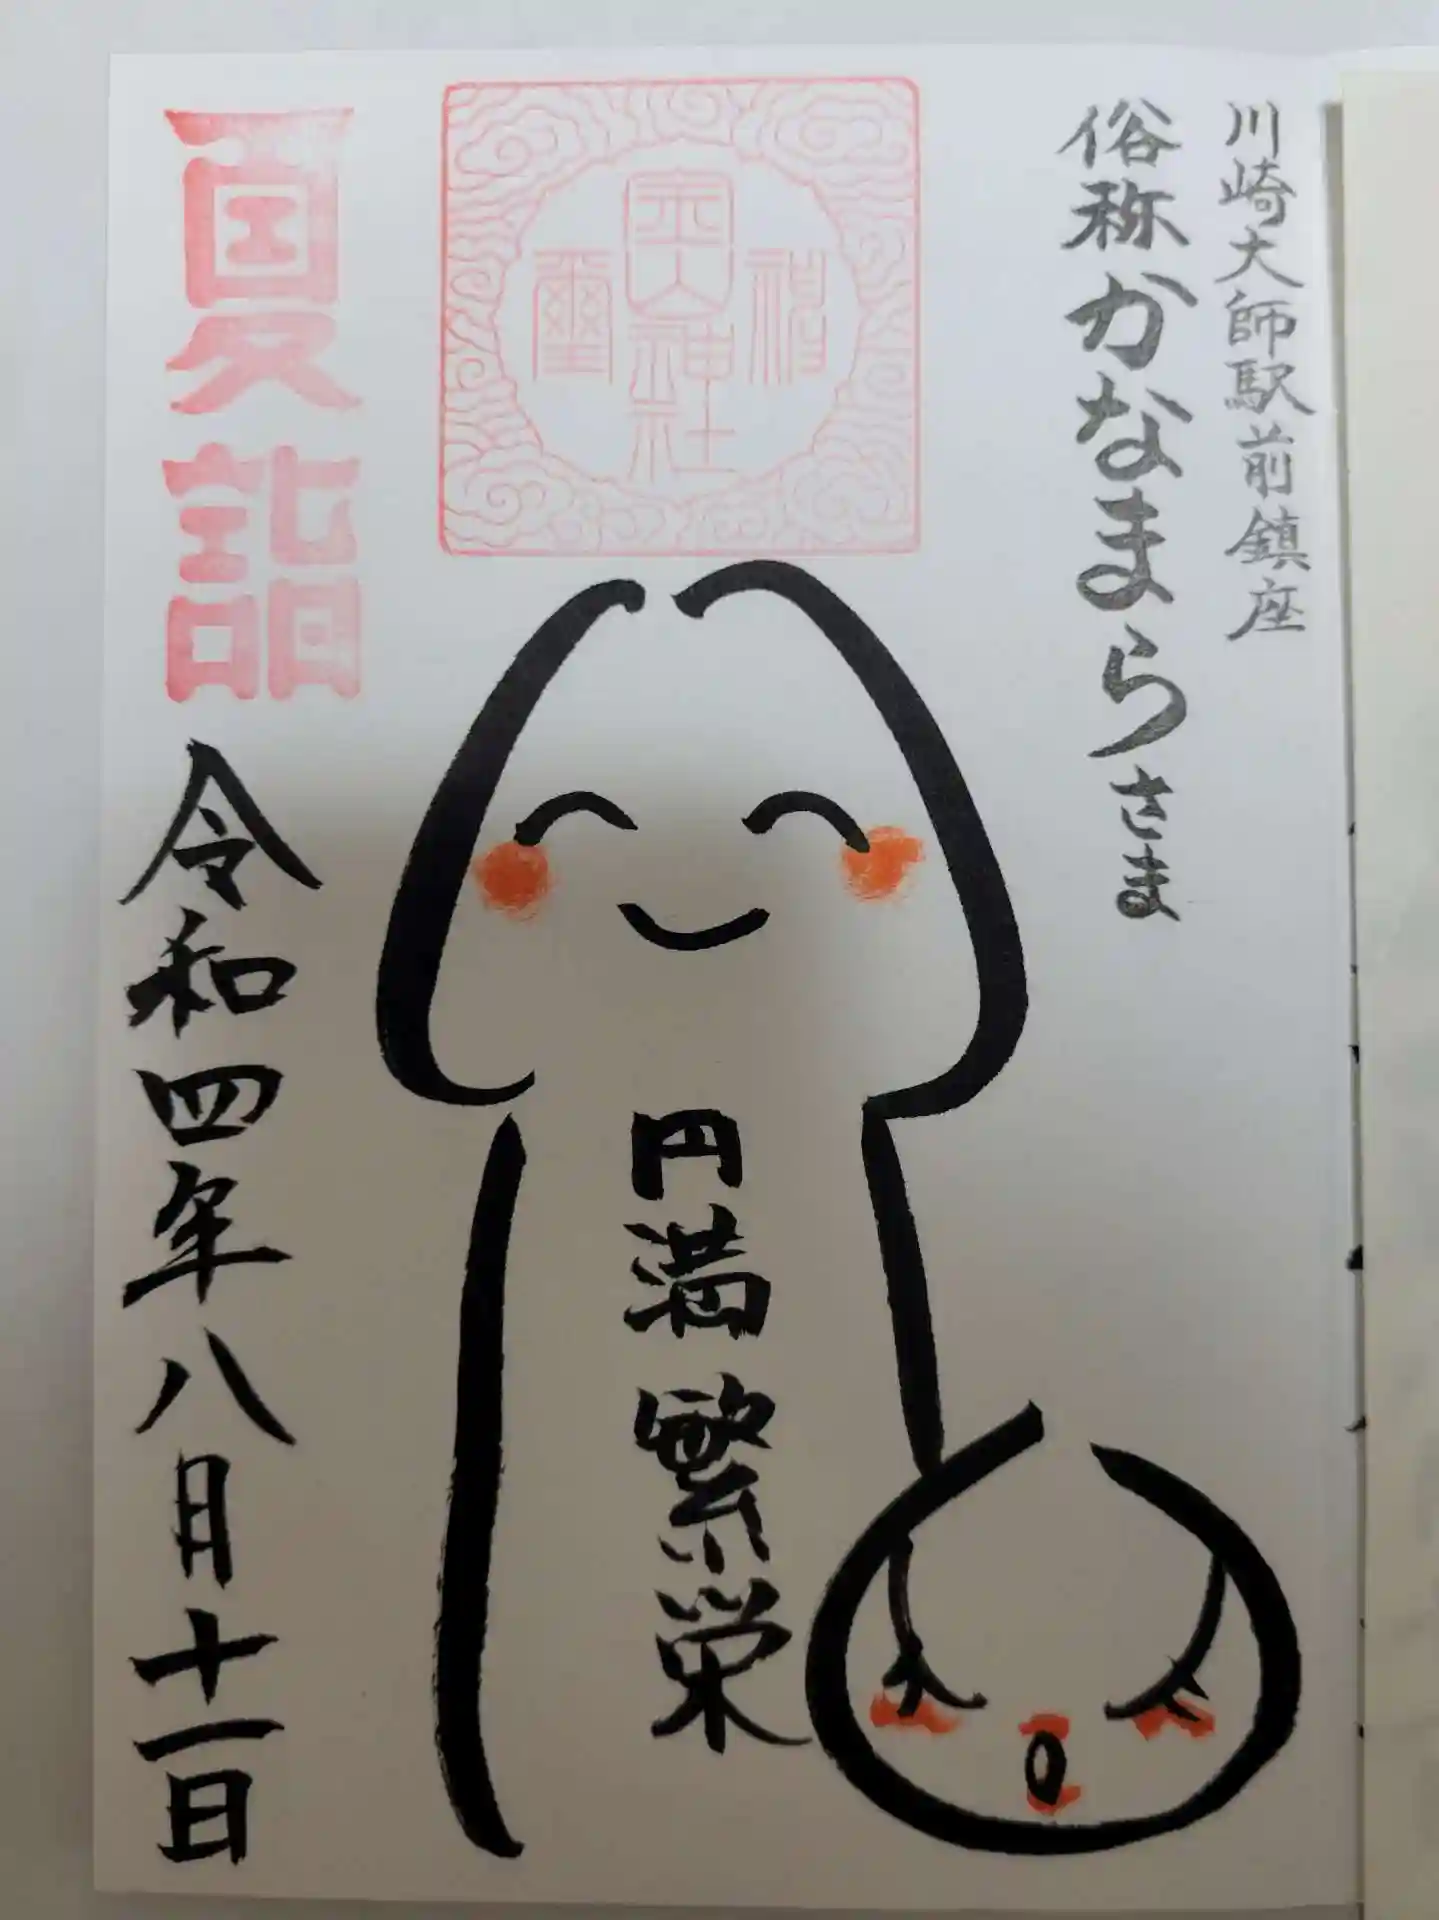 川崎大師駅前鎮座
俗称かなまらさま
金山神社
祝
璽
円満繁栄
夏詣
令和四年八月十一日